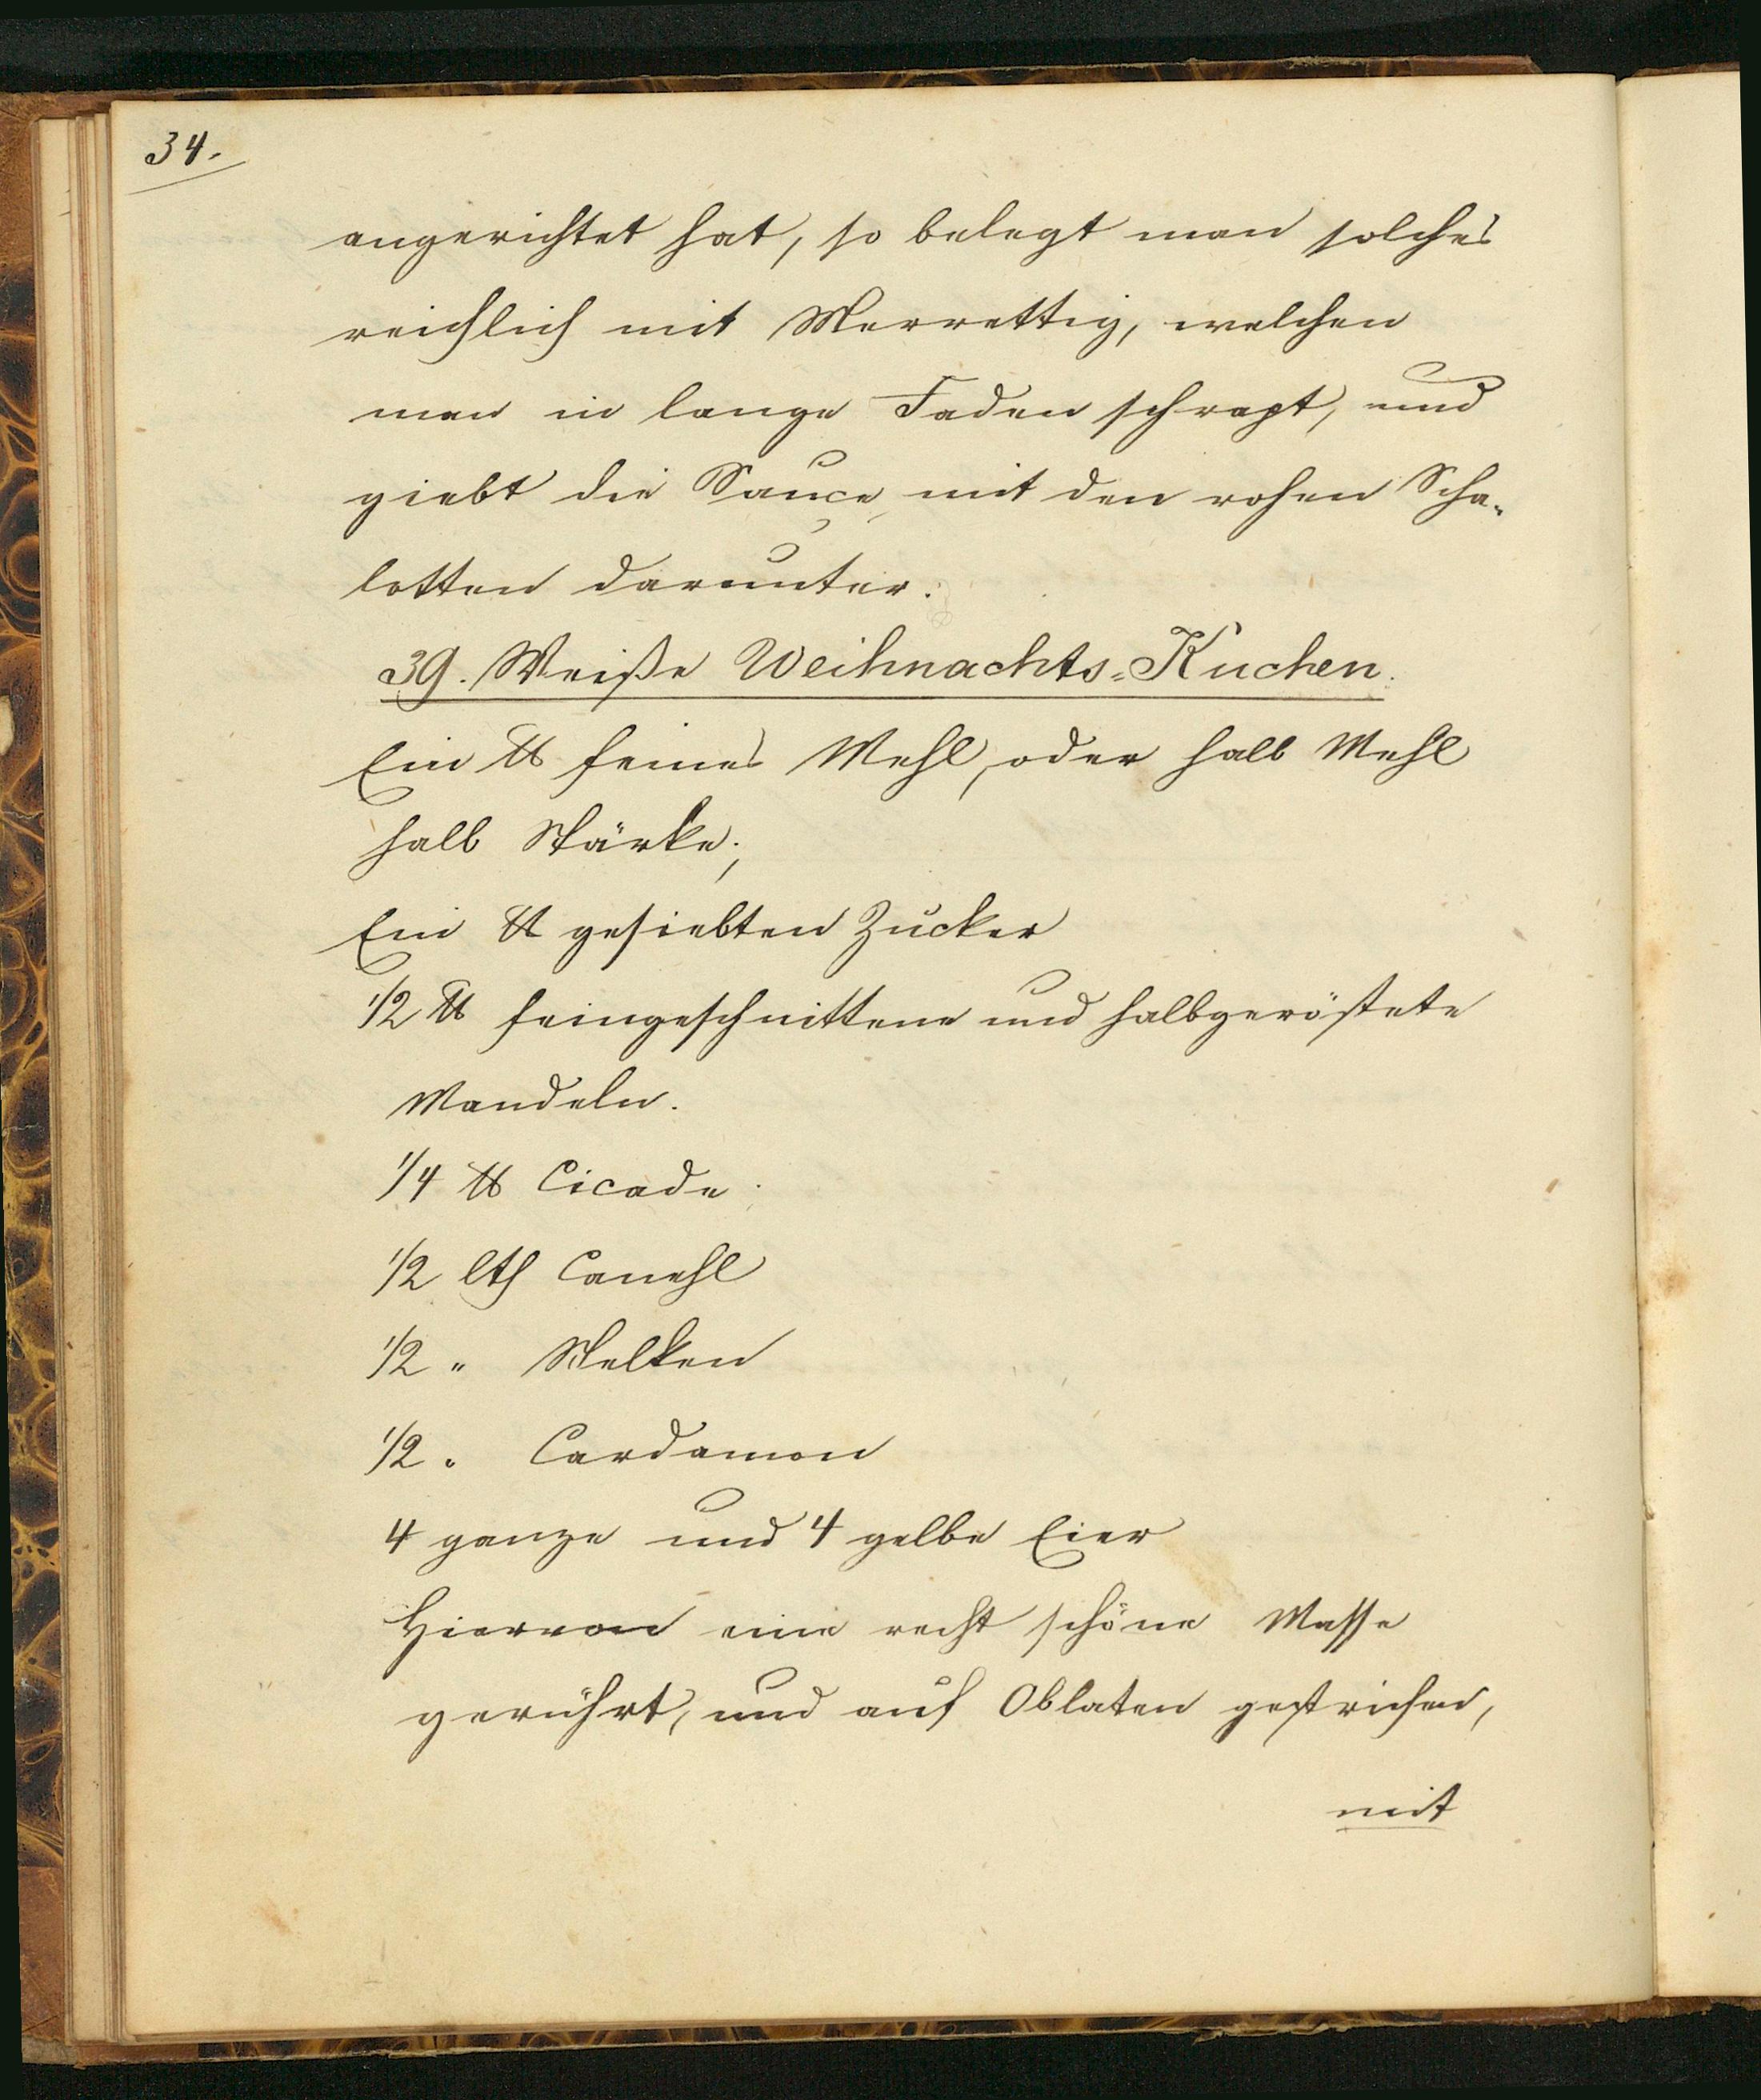 34.
angerichtet hat, so belegt man solches
reichlich mit Merrettig, welchen
man in lange Faden schrapt, und
giebt die Sauce, mit den rohen Scha-
lotten darunter.
39. Weiße Weihnachts-Kuchen.
Ein ℔ feines Mehl, oder halb Mehl
halb Stärke;
Ein ℔ gesiebten Zucker
1/2 ℔ feingeschnittene und halbgeröstete
Mandeln.
1/4 ℔ Cicade.
1/2 lth Canehl
1/2 " Nelken
1/2 " Cardamon
4 ganze und 4 gelbe Eier
Hiervon eine recht schöne Masse
gerührt, und auf Oblaten gestrichen,
mit